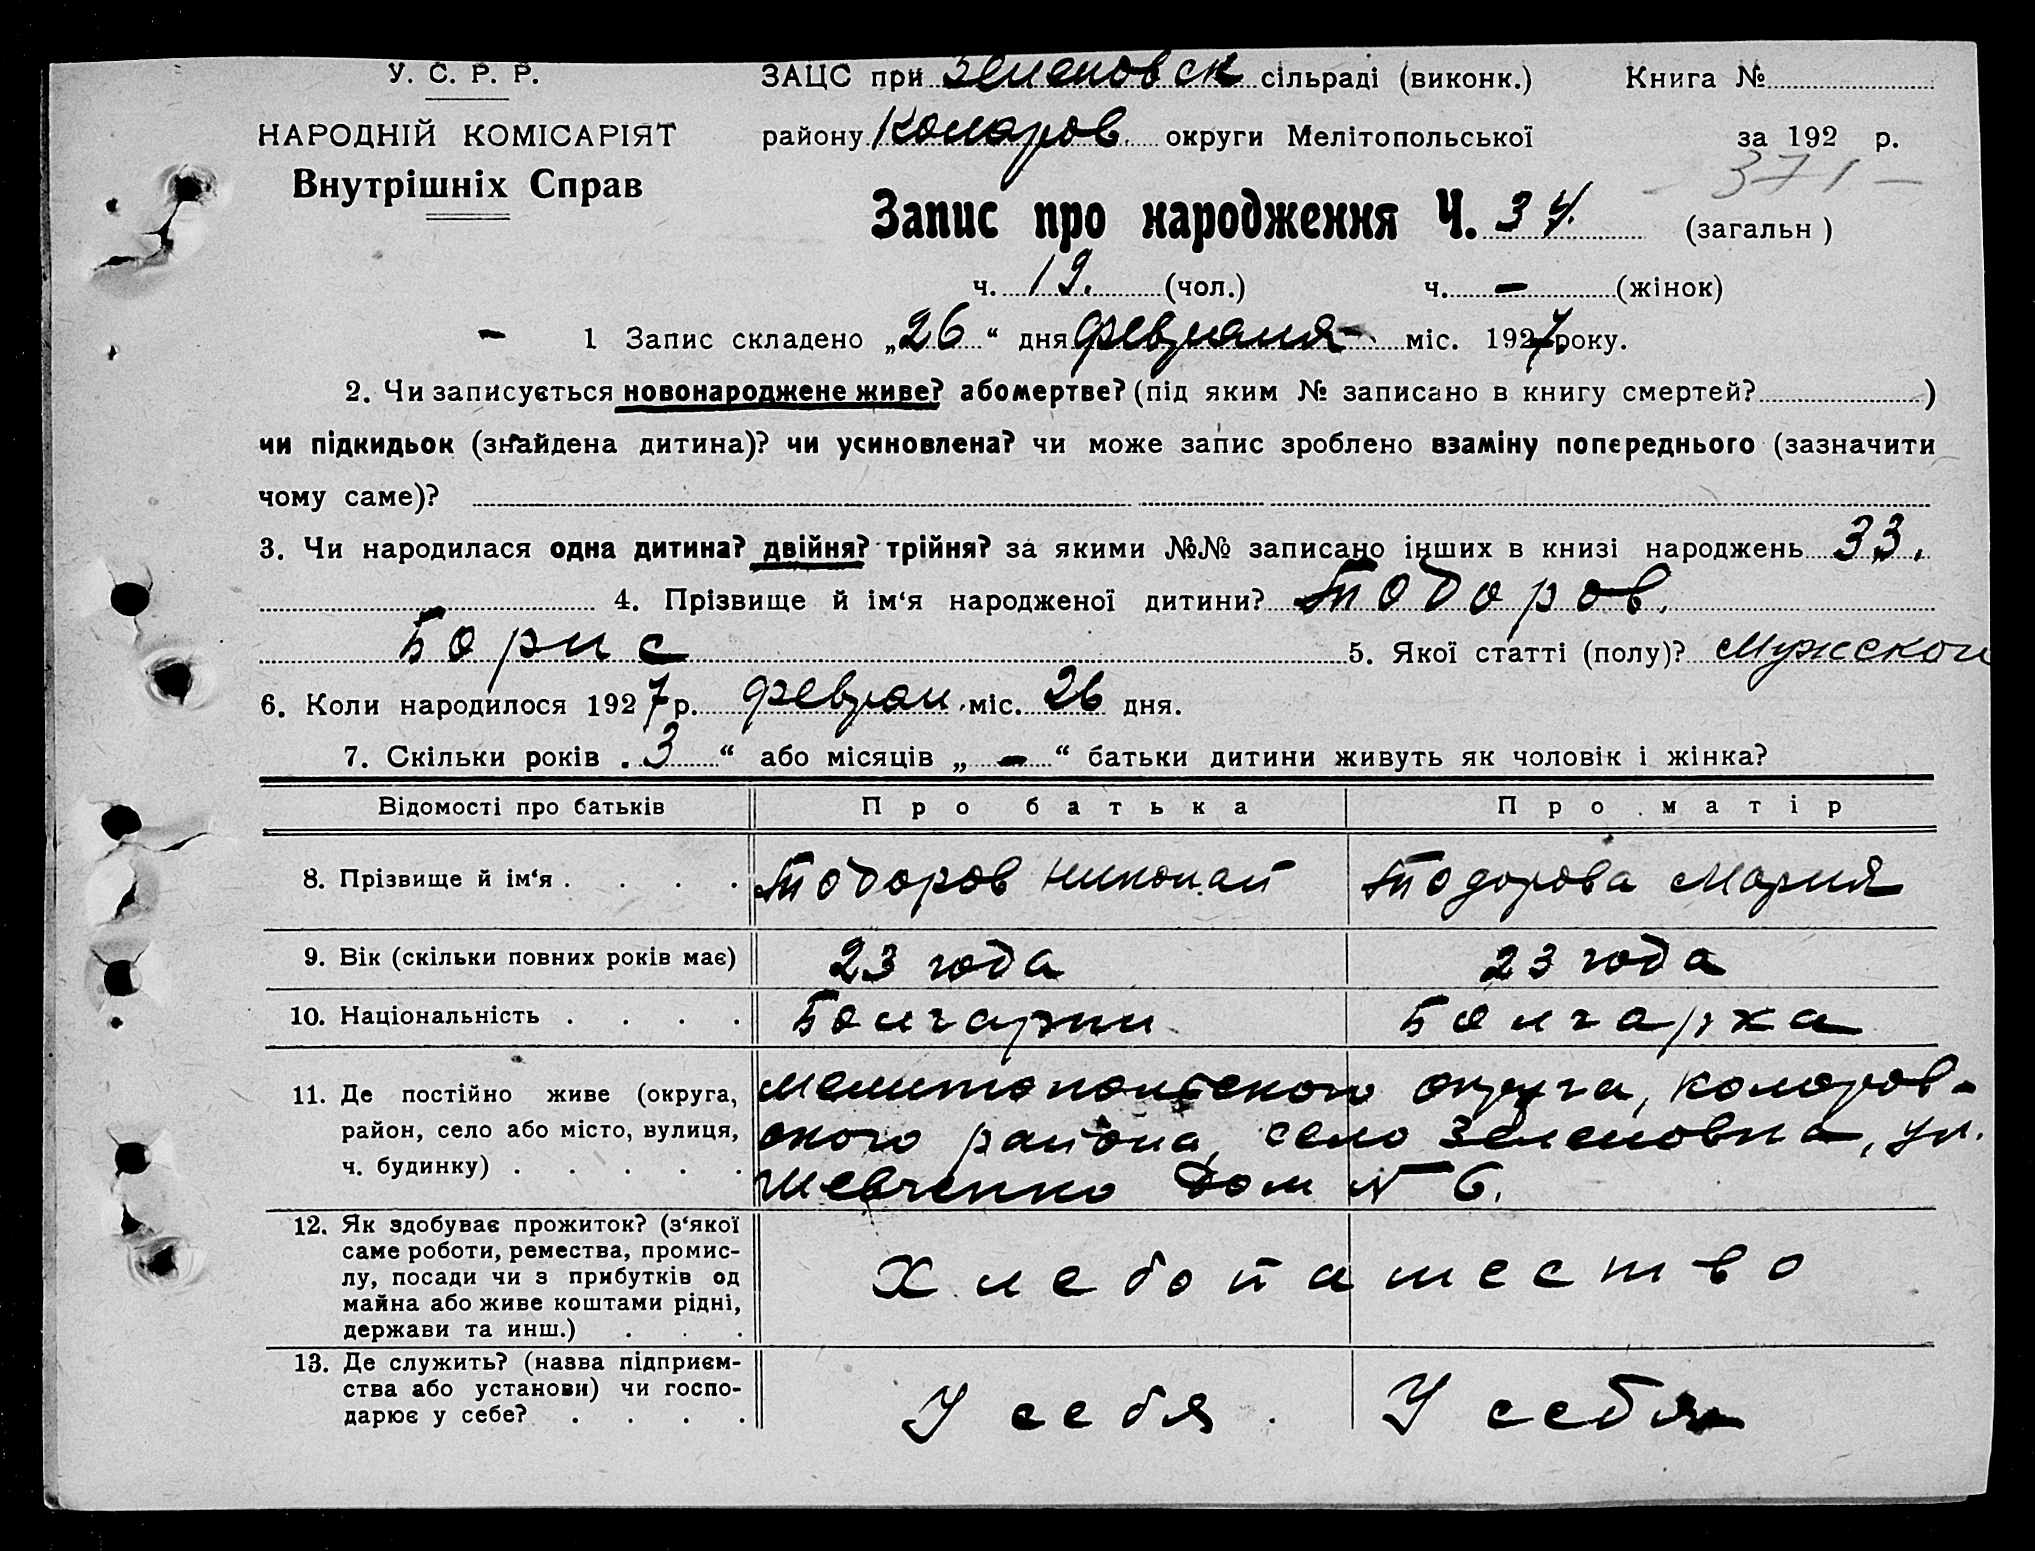 У. С. Р. Р.
НАРОДНІЙ КОМІСАРІЯТ
Внутрішніх Справ
ЗАЦС при Зеленовск сільраді (виконк.) Книга №
району Коларов. округи Мелітопольської за 192 р.
- 371 -
Запис про народження Ч. 34. (загальн )
ч. 19. (чол.) ч. - (жінок)
- 1 Запис складено „26“ дня февраля - міс. 1927 року.
2. Чи записується новонароджене живе? або мертве? (під яким № записано в книгу смертей? )
чи підкидьок (знайдена дитина)? чи усиновлена? чи може запис зроблено взаміну попереднього (зазначити
чому саме)?
3. Чи народилася одна дитина? двійня? трійня? за якими №№ записано інших в книзі народжень 33.
4. Прізвище й ім‘я народженої дитини? Тодоров.
Борис 5. Якої статті (полу)? Мужской
6. Коли народилося 1927 р. феврал міс. 26 дня.
7. Скільки років „ 3 “ або місяців „ - “ батьки дитини живуть як чоловік і жінка?
Відомості про батьків Про батька Про матір
8. Прізвище й ім‘я . . . . Тодоров Николай Тодорова Мария
9. Вік (скільки повних років має) 23 года 23 года
10. Національність . . . . Болгарин Болгарка
11. Де постійно живе (округа, Мелитопольского округа, Коларов-
район, село або місто, вулиця, ского района, село Зеленовка, ул.
ч. будинку) . . . . . Шевченко Дом № 6.
12. Як здобуває прожиток? (з‘якої
саме роботи, ремества, промис-
лу, посади чи з прибутків од Хлебопашество
майна або живе коштами рідні,
держави та инш.) . . .
13. Де служить? (назва підприєм-
ства або установи) чи госпо- У себя. У себя
дарює у себе? . . . .